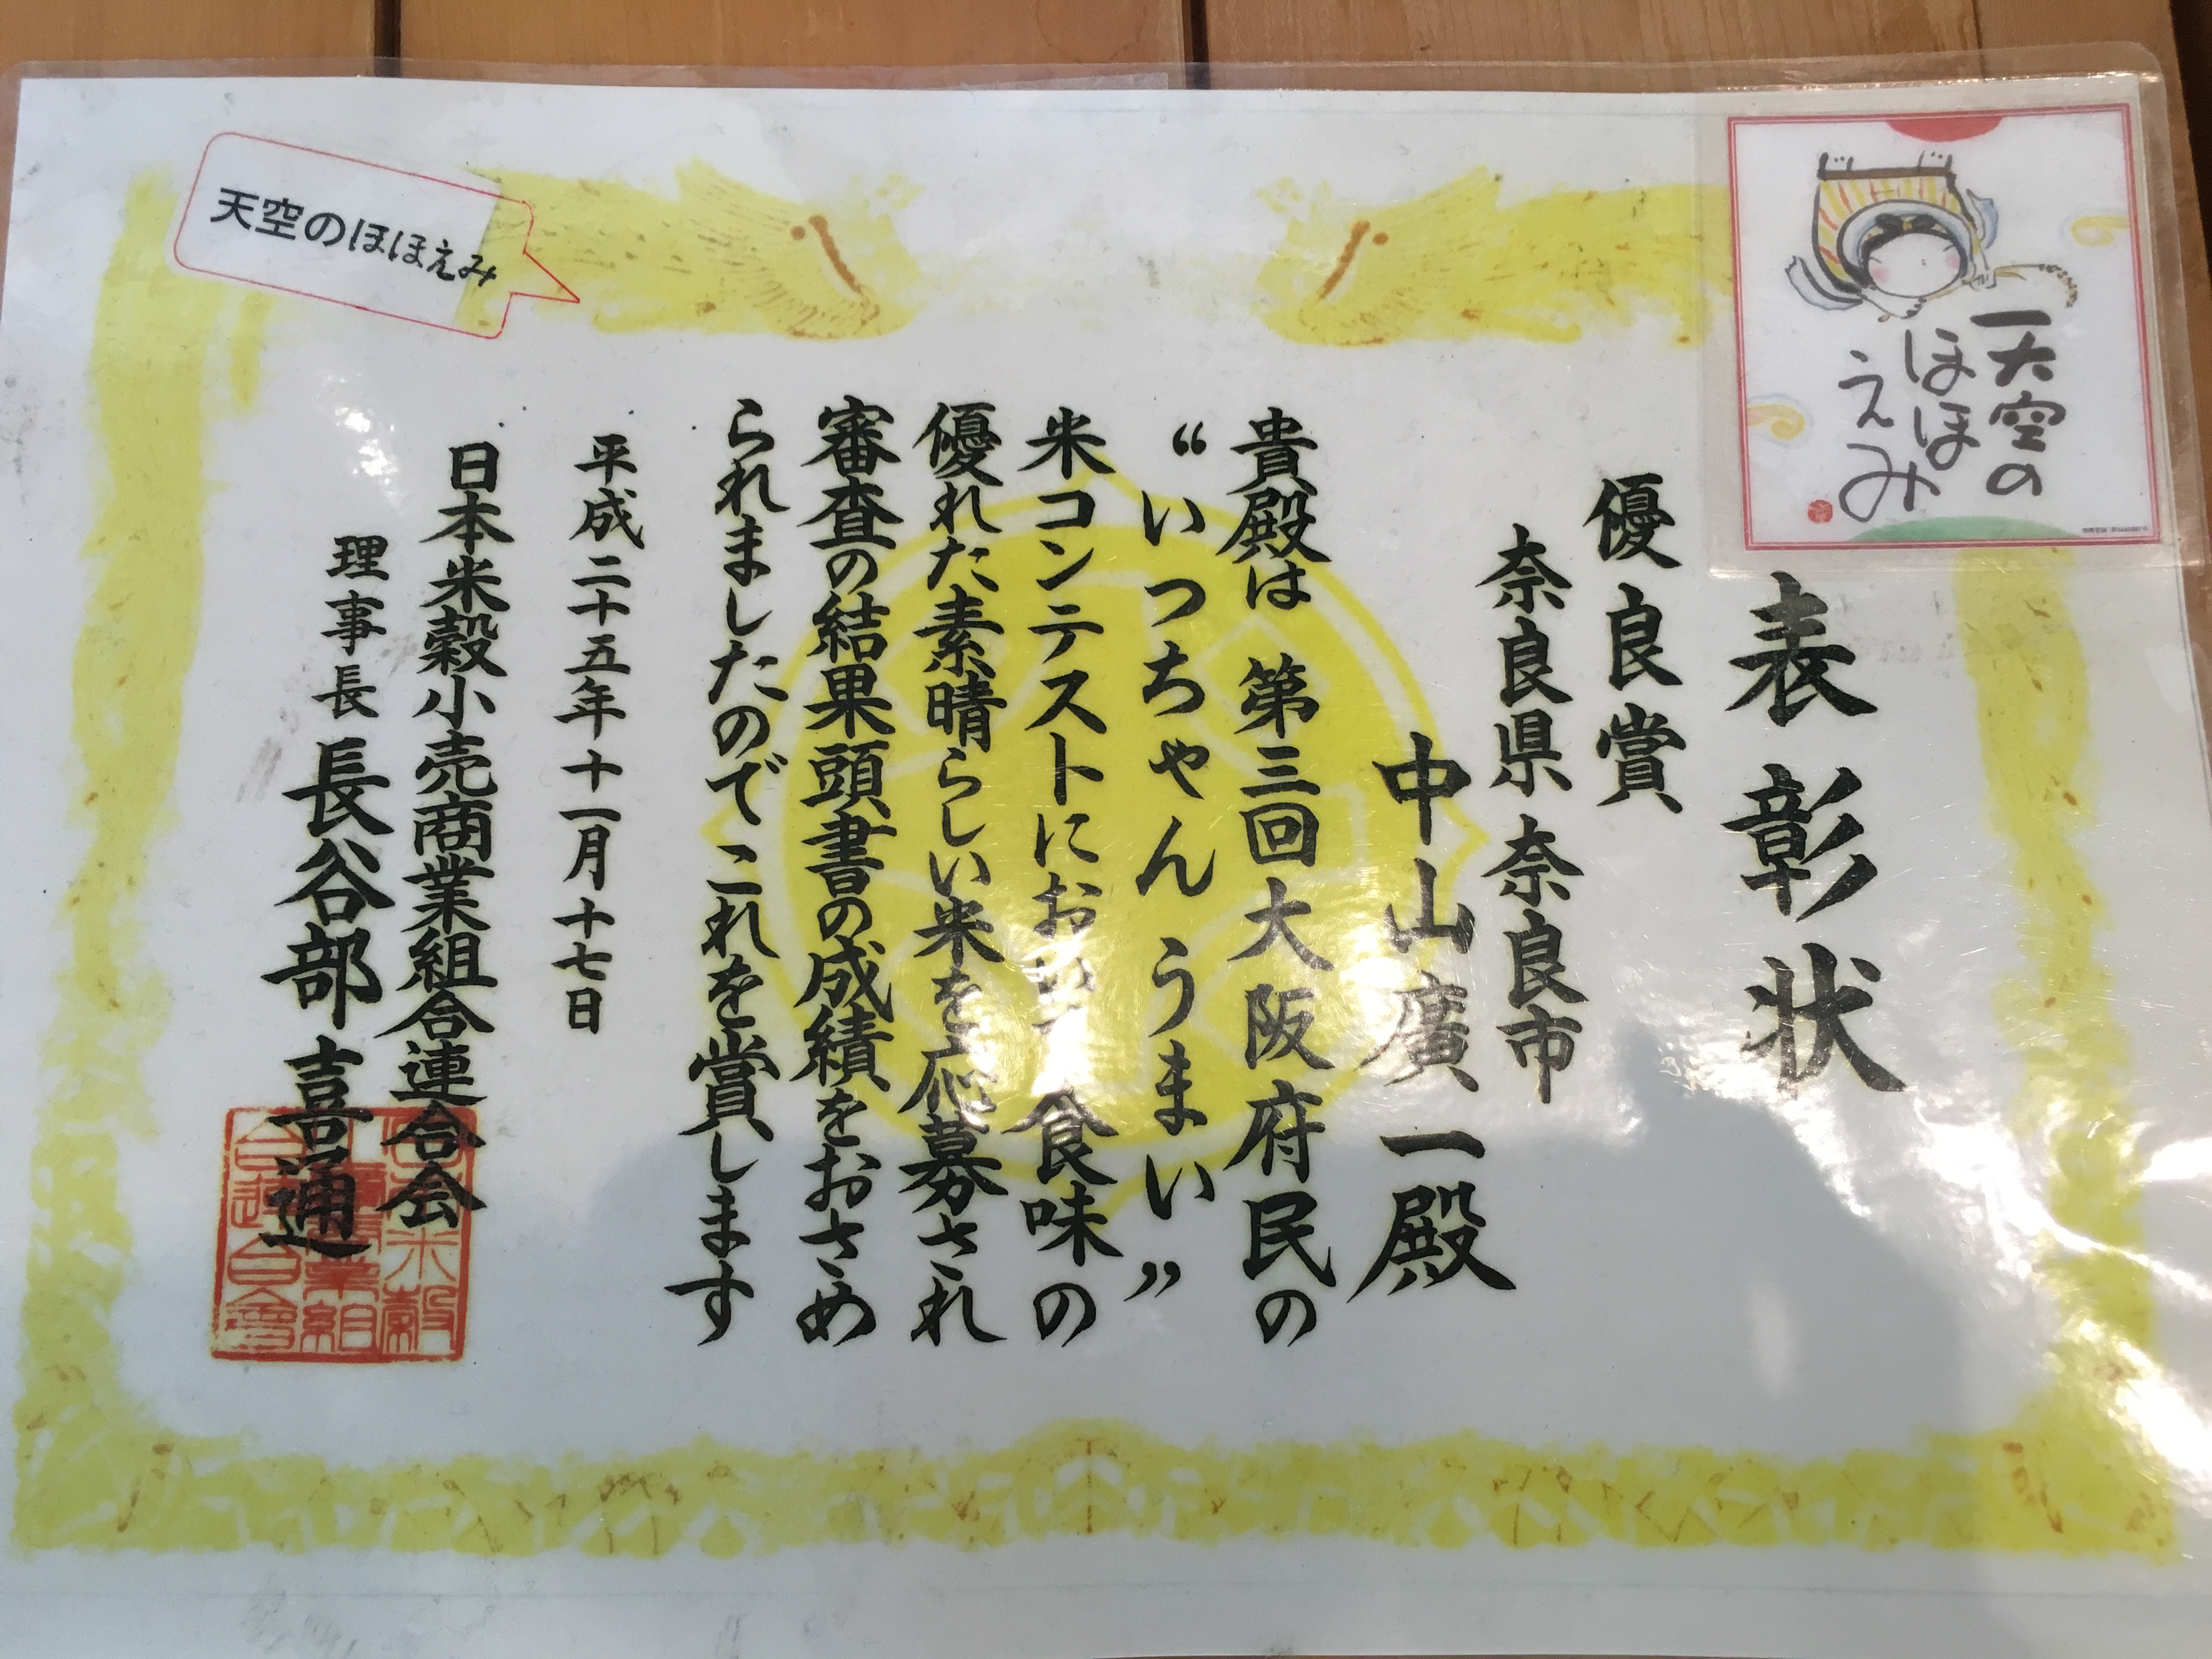 天空のほほえみ
天空の
ほほ
えみ
表彰状
優良賞
奈良県奈良市
中山廣一殿
貴殿は 第三回大阪府民の
“いっちゃんうまい”
米コンテストにおいて食味の
優れた素晴らしい米を応募され
審査の結果頭書の成績をおさめ
られましたのでこれを賞します
平成二十五年十一月十七日
日本米穀小売商業組合連合会
理事長 長谷部喜通